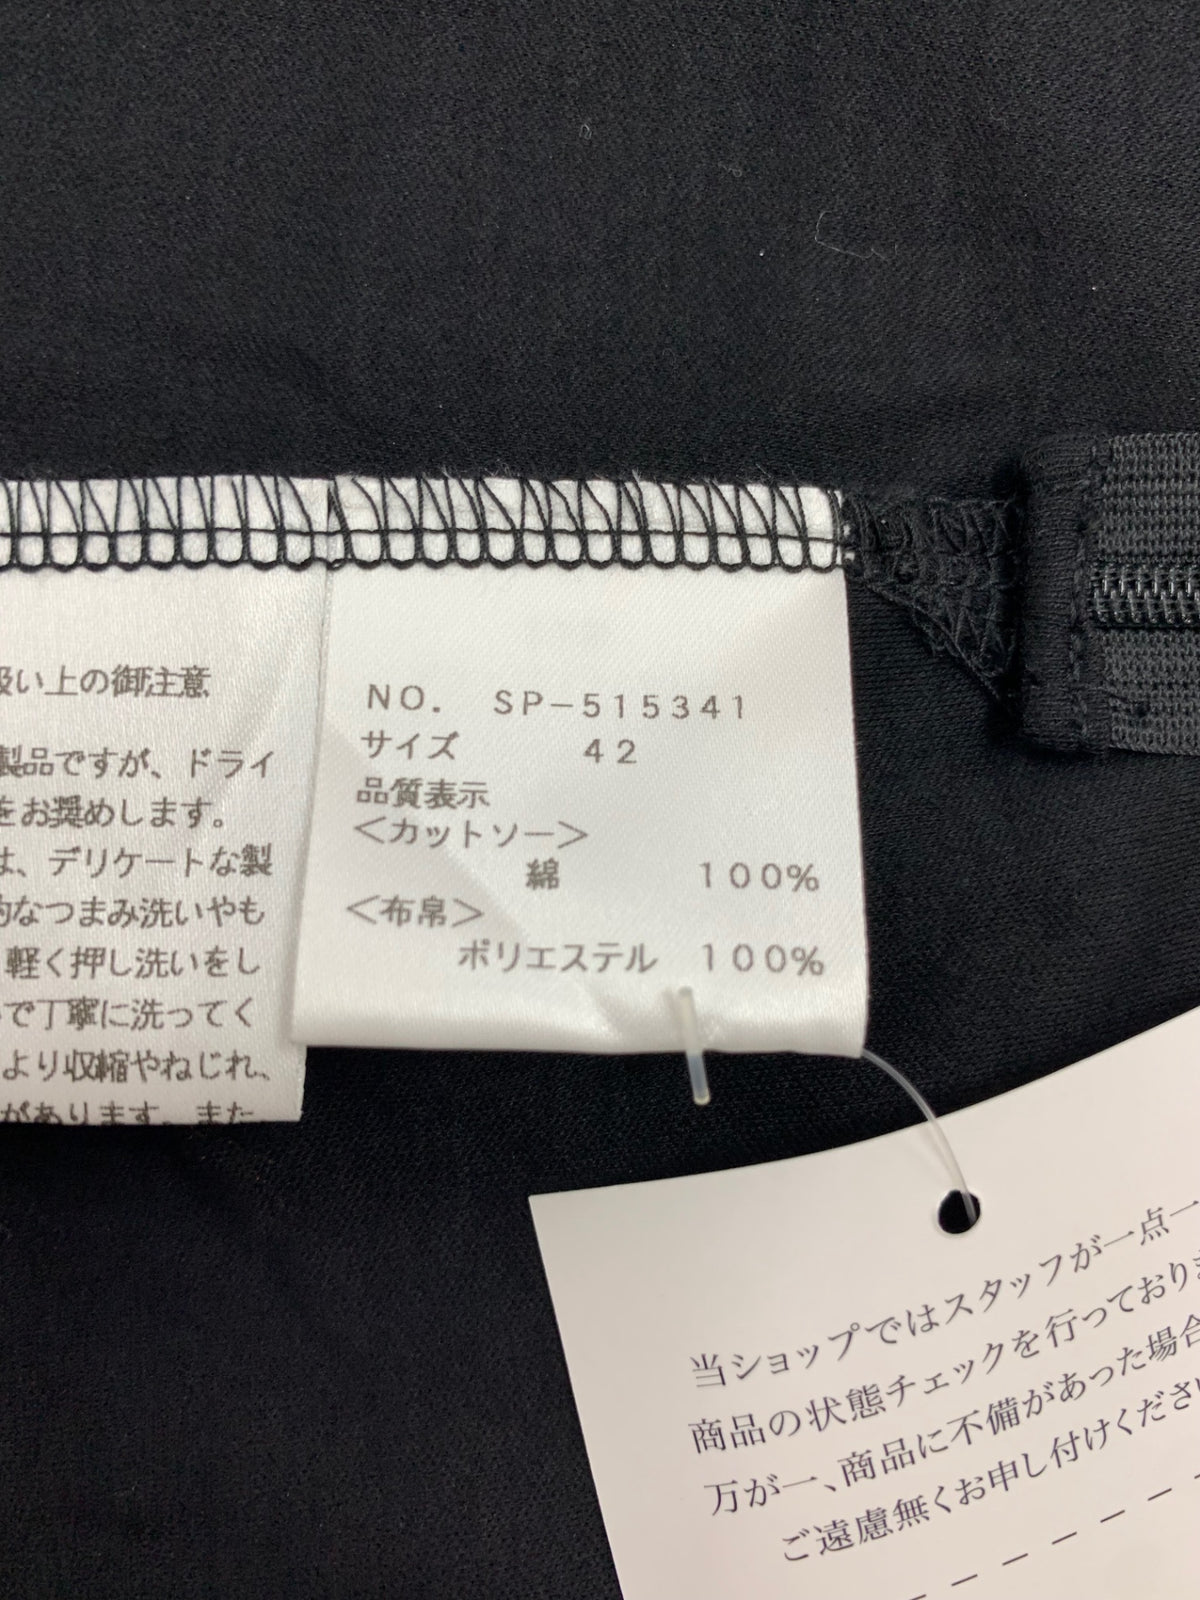 扱い上の御注意
製品ですが、ドライ
をお奨めします。
は、デリケートな製
的なつまみ洗いやも
軽く押し洗いをし
で丁寧に洗ってく
より収縮やねじれ、
があります。また
NO. SP-515341
サイズ 42
品質表示
<カットソー>
綿 100%
<布帛>
ポリエステル 100%
当ショップではスタッフが一点一
商品の状態チェックを行っておりま
万が一、商品に不備があった場合
ご遠慮無くお申し付けくださ